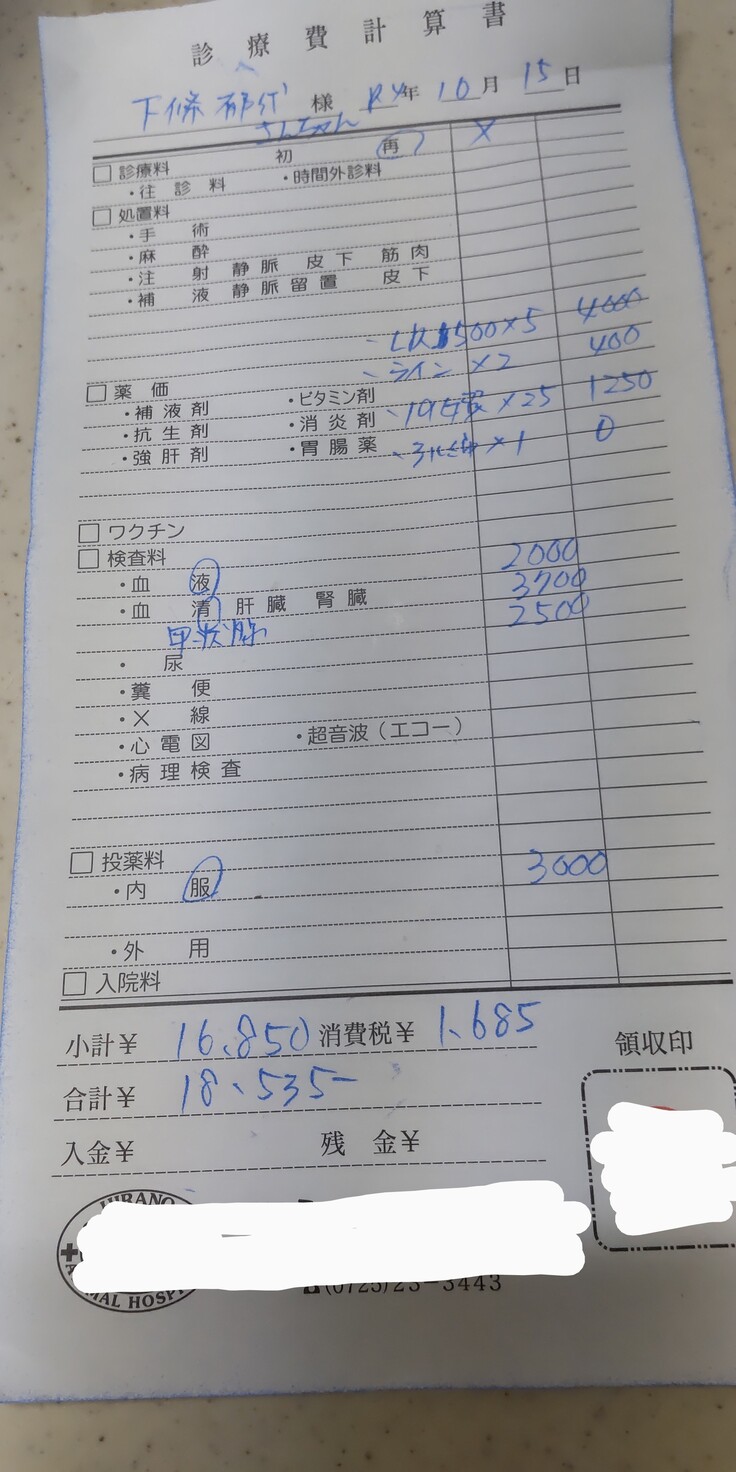 診療費計算書
下條 郁代 様 R4年 10月 15日
さんちゃん
□ 診療料 初 再 ×
・往診料 ・時間外診料
□ 処置料
・手術
・麻酔
・注射 静脈 皮下 筋肉
・補液 静脈留置 皮下
500×5 4000
ライン ×2 400
□ 薬価
・補液剤 ・ビタミン剤 ×25 1250
・抗生剤 ・消炎剤 ×1 0
・強肝剤 ・胃腸薬
□ ワクチン
□ 検査料
・血液 2000
・血清 肝臓 腎臓 3700
甲状腺 2500
・尿
・糞便
・X線
・心電図 ・超音波(エコー)
・病理検査
□ 投薬料
・内服 3000
・外用
□ 入院料
小計¥ 16,850 消費税¥ 1,685
合計¥ 18,535-
領収印
入金¥ 残金¥
HIRANO
MAL HOSP
☎(0725)23-3443